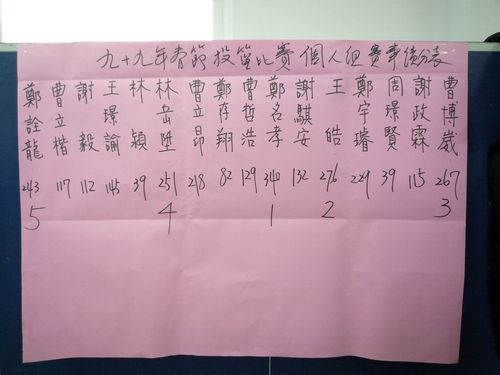 九十九年春節投籃比賽 個人組賽事績分表
鄭詮龍
曹立楷
謝毅
王璟諭
林穎
林岳
曹立昂
鄭存翔
曹哲浩
鄭名孝
謝騏安
王皓
鄭宇璿
周璟賢
謝政霖
曹博崴
243 117 112 145 39 251 218 82 129 340 132 276 229 39 115 267
5 4 1 2 3